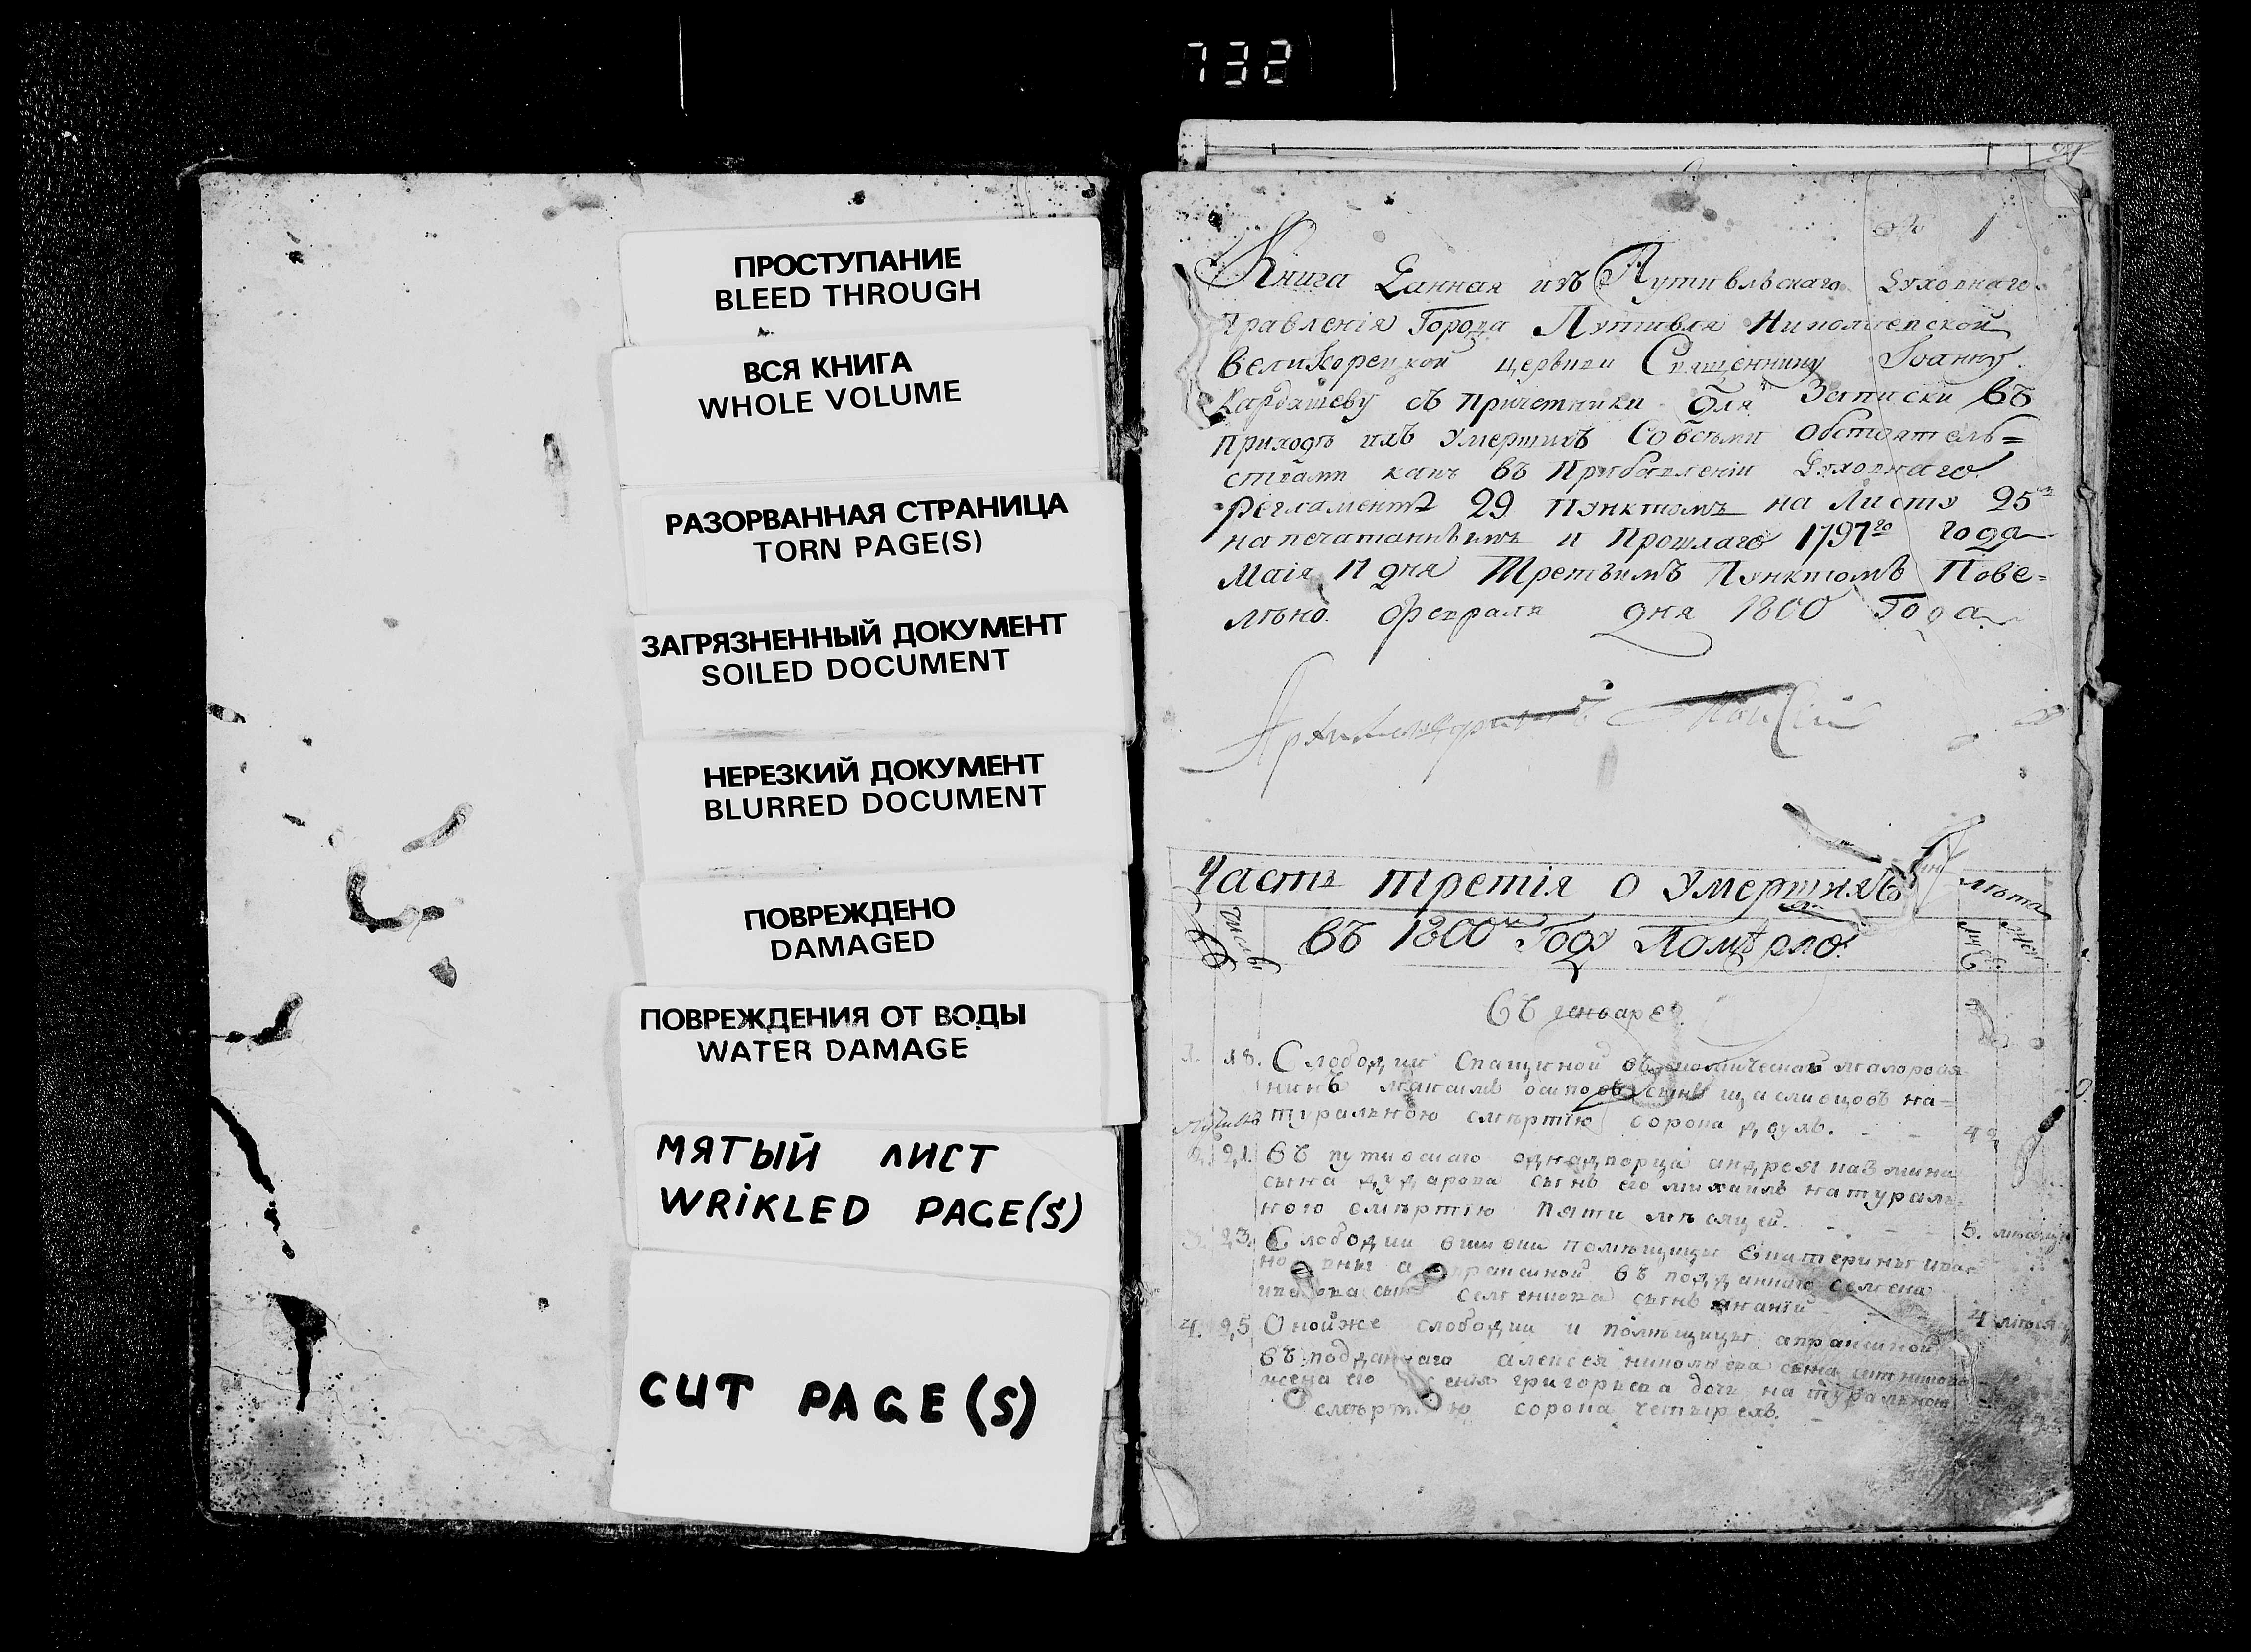 732
ПРОСТУПАНИЕ
BLEED THROUGH
ВСЯ КНИГА
WHOLE VOLUME
РАЗОРВАННАЯ СТРАНИЦА
TORN PAGE(S)
ЗАГРЯЗНЕННЫЙ ДОКУМЕНТ
SOILED DOCUMENT
НЕРЕЗКИЙ ДОКУМЕНТ
BLURRED DOCUMENT
ПОВРЕЖДЕНО
DAMAGED
ПОВРЕЖДЕНИЯ ОТ ВОДЫ
WATER DAMAGE
МЯТЫЙ ЛИСТ
WRIKLED PAGE(S)
CUT PAGE(S)
1
Книга Данная изъ Путивльскаго Духовнаго
Правленія Города Путивля Николаевской
Великорецкой церькви Священнику Іоанну
Кардашеву съ Причетники для Записки въ
Приходѣ ихъ Умершихъ Со всѣми Обстоятель=
ствами какъ въ Прибавленіи Духовнаго
Регламента 29 Пунктомъ на Листу 25
напечатаннымъ и Прошлаго 1797го года
Маія 17 дня Третьимъ Пунктомъ Пове=
лѣно. февраля дня 1800 Года
Архимандритъ
Часть третія о Умершихъ лѣта
числы въ 1800м Году Померло
въ генваре
1. 18. Слободки Спащиной малоросія
нинъ максимъ осиповъ сынъ на=
туральною смѣртїю сорока двухъ. 42
2. 21. въ путивскаго однадворца андрея казмина
сына сынъ его михаилъ натураль=
ного смѣртїю пяти мѣсяцей. 5. мѣсяц
3. 23. Слободки помѣщицы Екатерины
въ подданнаго семена
сынъ 4 мѣся
4. 25 Онойже слободки и помѣщицы апраксиной
въ подданнаго алексея николаева сына
жена его григорьева дочь натуральною
сорока четырехъ.